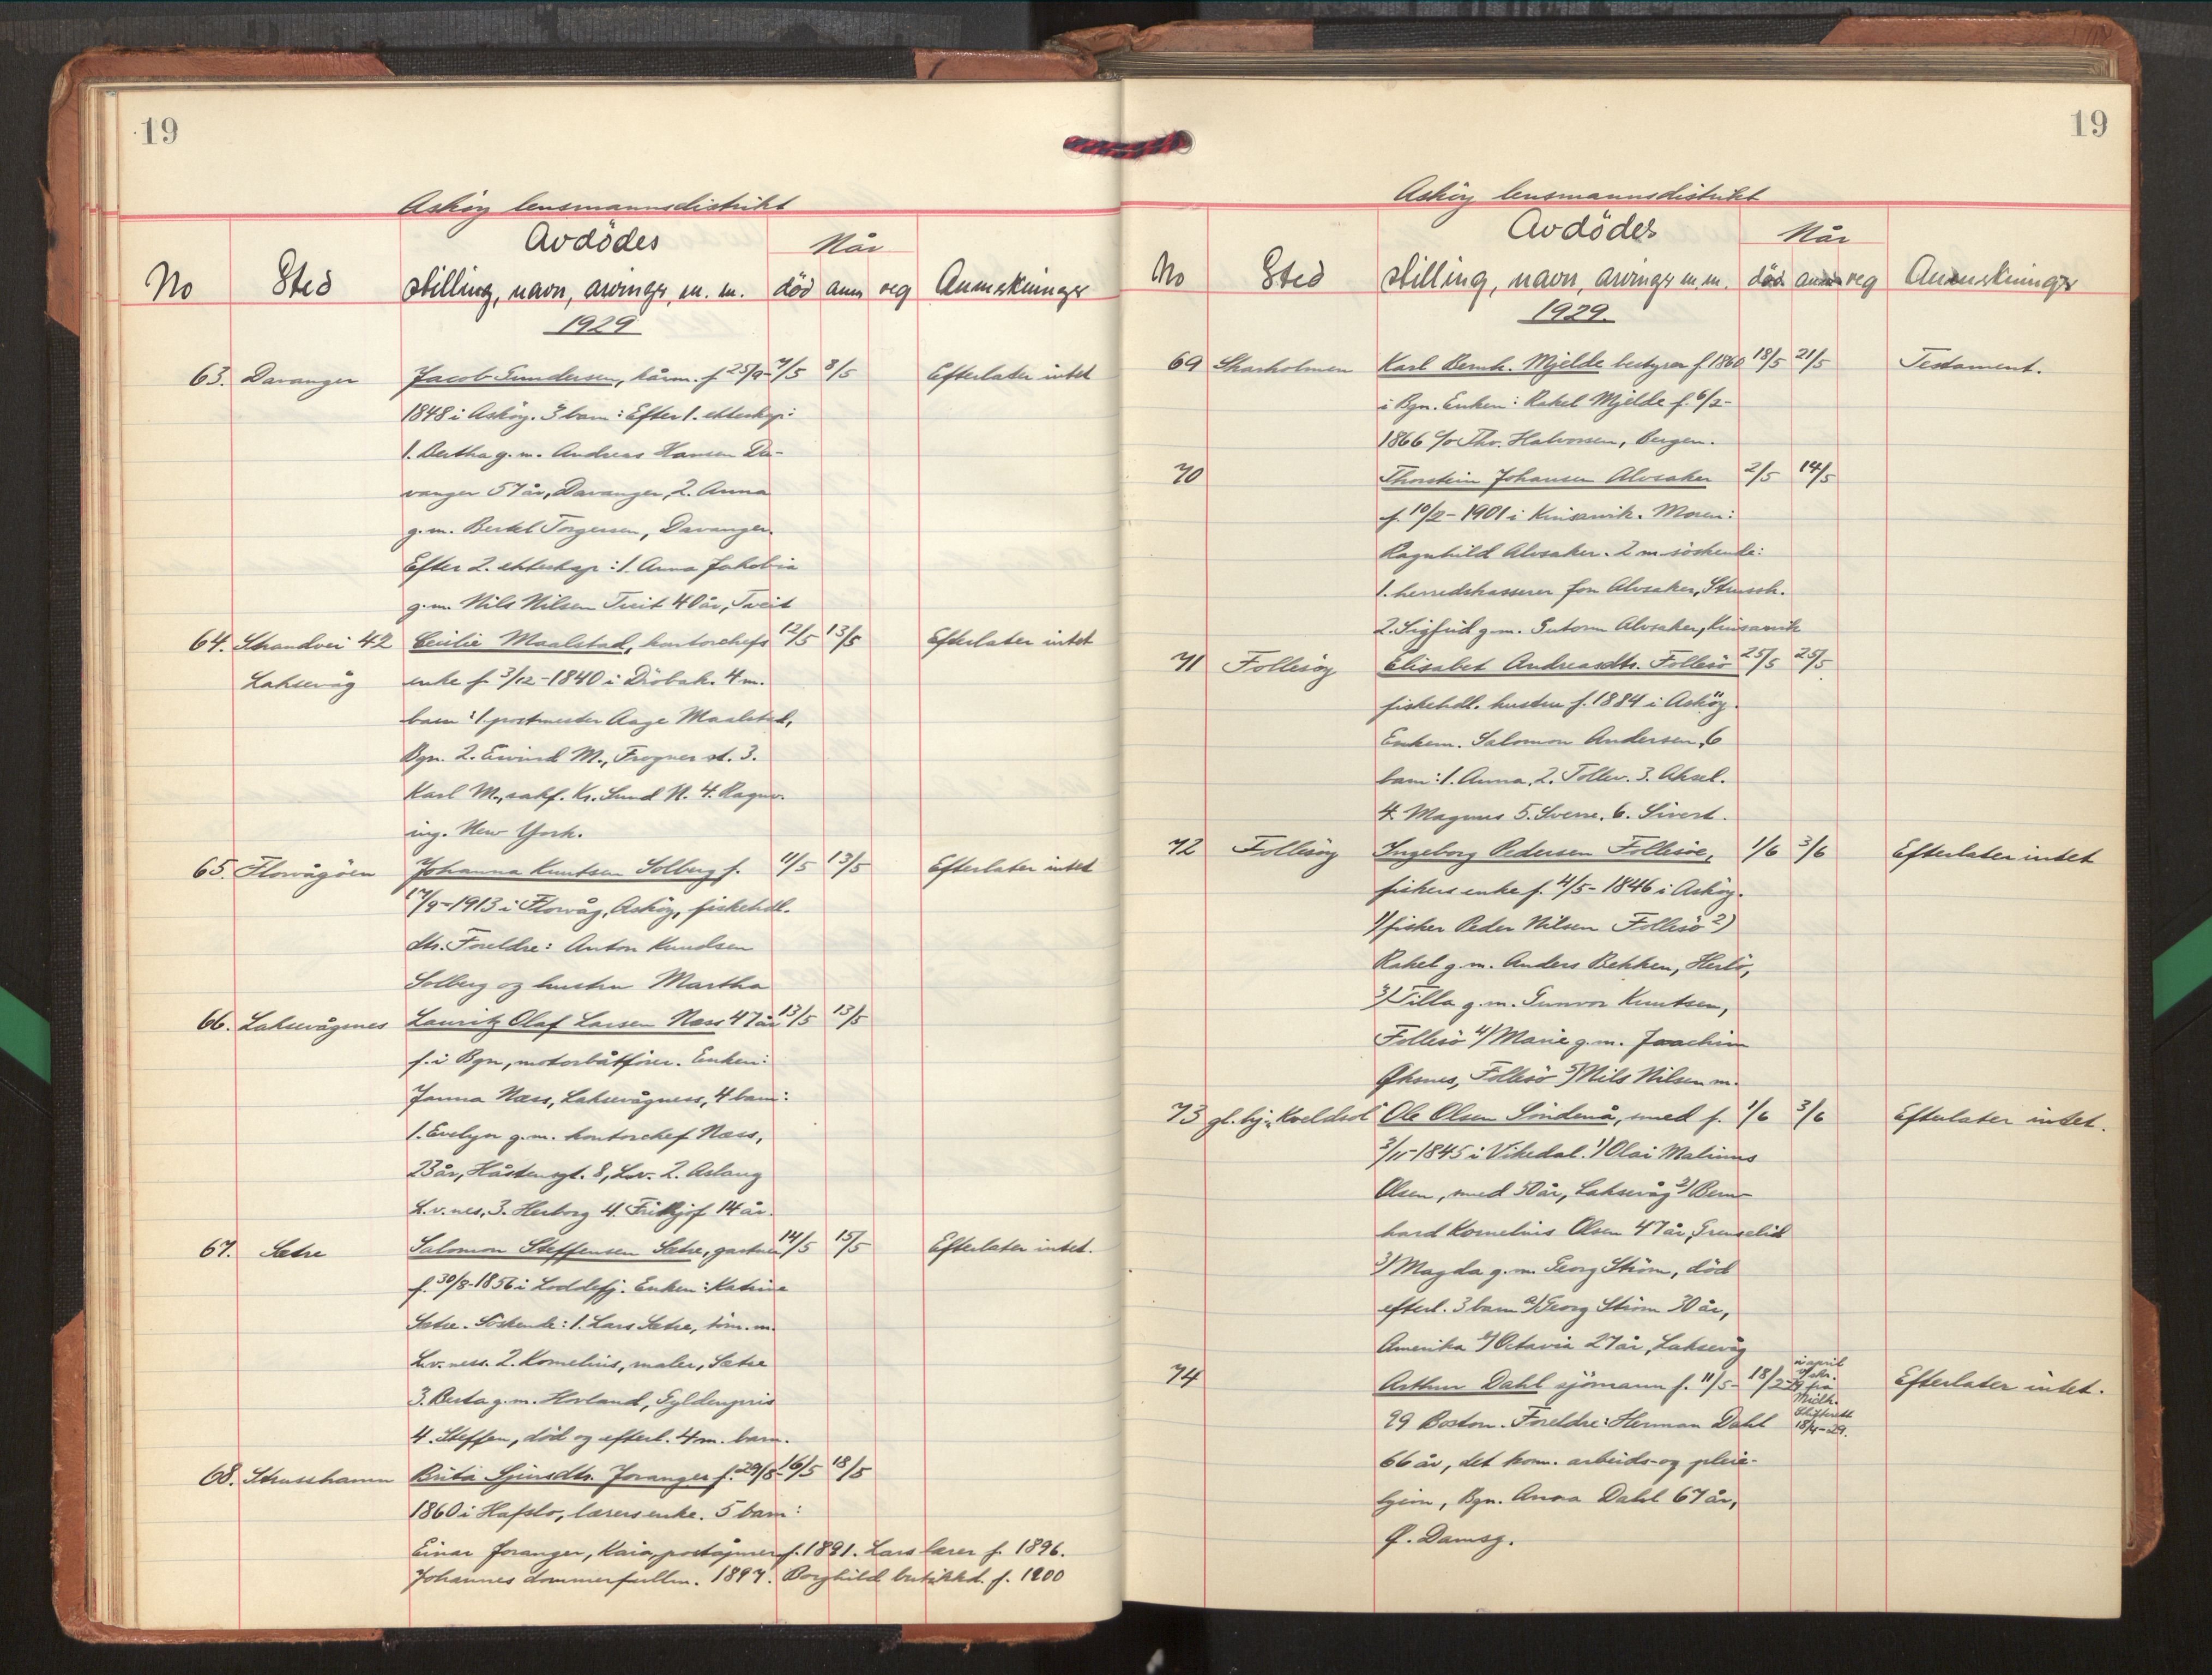 19
Askøy lensmannsdistrikt
No Sted Avdödes stilling, navn, arvinger, m. m. Når död anm reg Anmerkninger
1929
63. Davanger Jacob Gundersen, kårm. f 25/9- 7/5 8/5 Efterlater intet
1848 i Askøy. 3 barn: Efter 1. ekteskap:
1. Bertha g. m. Andreas Hansen Da-
vanger 57 år, Davanger, 2. Anna
g. m. Bertel Torgersen, Davanger.
Efter 2. ekteskap: 1. Anna Jakobia
g. m. Nils Nilsen Tveit 40 år, Tveit
64. Strandvei 42 Cecilie Maalstad, kontorchefs 12/5 13/5 Efterlater intet
Laksevåg enke f. 3/12-1840 i Dröbak. 4 m.
barn: 1. postmester Aage Maalstad,
Bgn. 2. Eivind M., Frogner st. 3.
Karl M., sakf. Kr. Sund N. 4. Ragnv.
ing. New York.
65. Florvågöen Johanna Knutsen Solberg f. 11/5 13/5 Efterlater intet
17/9-1913 i Florvåg, Askøy, fiskehdl.
dtr. Foreldre: Anton Knudsen
Solberg og hustru Martha
66. Laksevågsnes Lauritz Olaf Larsen Næss 47 år 13/5 13/5
f. i Bgn, motorbåtförer. Enken:
Janna Næss, Laksevågness, 4 barn:
1. Evelyn g. m. kontorchef Næss,
23 år, Håstensgt. 8, Lv. 2. Aslaug
L. v. nes, 3. Herborg 4. Fridtjof 14 år.
67. Sætre Salomon Steffensen Sætre, gartner 14/5 15/5 Efterlater intet.
f. 30/8-1856 i Loddefj. Enken: Katrine
Sætre. Söskende: 1. Lars Sætre, töm. m.
Lv. ness. 2. Kornelius, maler, Sætre
3. Berta g. m. Hovland, Gyldenpris
4. Steffen, död og efterl. 4 m. barn.
68. Strusshamn Brita Sjursdtr. Joranger f. 29/8- 16/5 18/5
1860 i Hafslo, lærersenke. 5 barn:
Einar Joranger, Kaia, poståpner f. 1891. Lars lærer f. 1896.
Johannes dommerfullm. 1897. Borghild butikkd. f. 1900
19
Askøy lensmannsdistrikt
No Sted Avdödes stilling, navn, arvinger m. m. Når död anm reg Anmerkninger
1929.
69 Skarholmen Karl Bernh. Mjelde bestyrer f. 1860 18/5 21/5 Testament.
i Bgn. Enken: Rakel Mjelde f. 6/2-
1866 c/o Thv. Halvorsen, Bergen.
70 Thorstein Johansen Alvsaker 2/5 14/5
f. 10/2-1901 i Kinsarvik. Moren:
Ragnhild Alvsaker. 2 m. söskende:
1. herredskasserer Jon Alvsaker, Strussh.
2. Sigfrid g. m. Gutorm Alvsaker, Kinsarvik
71 Follesøy Elisabet Andreasdtr. Follesö 25/5 25/5
fiskehdl. hustru f. 1884 i Askøy.
Enkem. Salomon Andersen, 6
barn: 1. Anna, 2. Tollev. 3. Aksel.
4. Magnus 5. Sverre. 6. Sivert.
72 Follesøy Ingeborg Pedersen Follesøe, 1/6 3/6 Efterlater intet
fiskers enke f. 4/5-1846 i Askøy.
1) fisker Peder Nilsen Follesö 2)
Rakel g. m. Anders Bekken, Herlö,
3) Tilla g. m. Gunvor Knutsen,
Follesö 4) Marie g. m. Joachim
Øksnes, Follesö 5) Nils Nilsen m.
73 gl. bj. "Kveldsol" Ole Olsen Söndenå, smed f. 1/6 3/6 Efterlater intet.
3/11-1845 i Vikedal. 1) Olai Malinus
Olsen, smed 50 år, Laksevåg 2) Bern-
hard Kornelius Olsen 47 år,
3) Magda g. m. Georg Ström, död
efterl. 3 barn a) Georg Ström 30 år,
Amerika b) Octavia 27 år, Laksevåg
74 Arthur Dahl sjömann f. 11/5- 18/2-29 i april skr. fra Midth. Skifterett 18/4-29. Efterlater intet.
99 Boston. Foreldre: Herman Dahl
66 år, det kom. arbeids- og pleie-
hjem, Bgn. Anna Dahl 67 år,
Ø. Damsg.